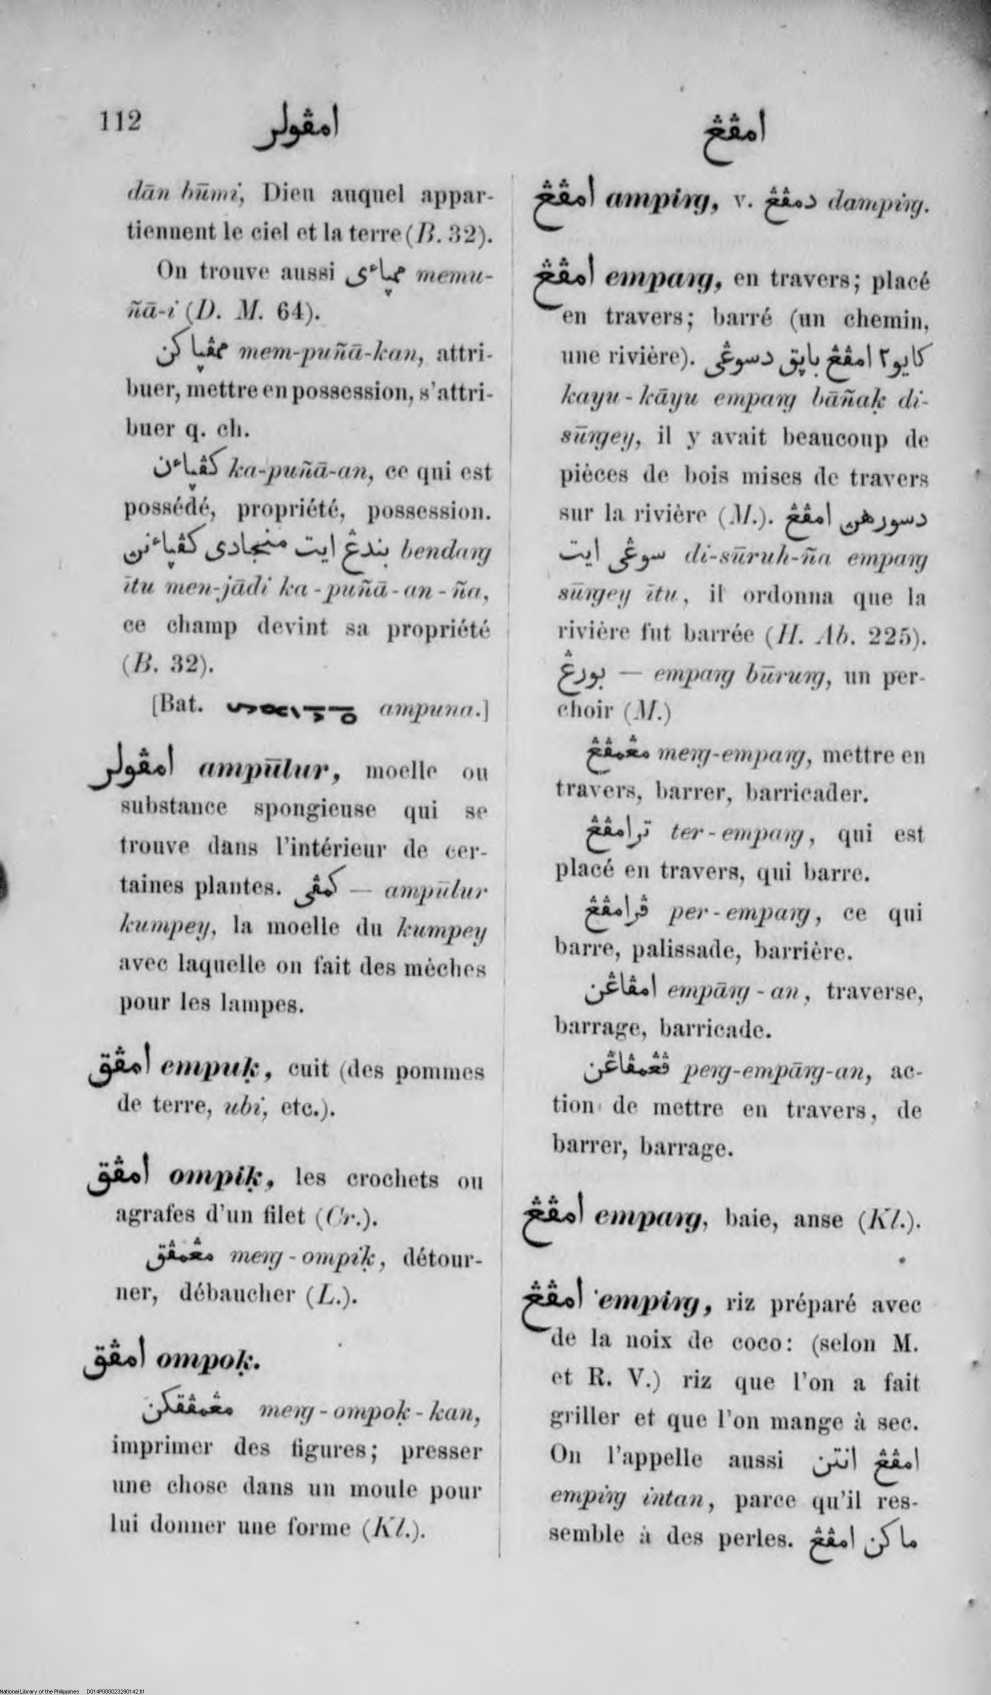 112
امڤولر
امڤڠ
dān būmi, Dieu auquel appar-
tiennent le ciel et la terre (B. 32).
On trouve aussi memu-
ñā-i (D. M. 64).
mem-puñā-kan, attri-
buer, mettre en possession, s'attri-
buer q. ch.
ka-puñā-an, ce qui est
possédé, propriété, possession.
بندڠ ايت منجادى bendaŋ
ītu men-jādi ka-puñā-an-ña,
ce champ devint sa propriété
(B. 32).
[Bat. ampuna.]
امڤولر ampūlur, moelle ou
substance spongieuse qui se
trouve dans l'intérieur de cer-
taines plantes. كمڤى — ampūlur
kumpey, la moelle du kumpey
avec laquelle on fait des mèches
pour les lampes.
امڤق empuḳ, cuit (des pommes
de terre, ubi, etc.).
امڤق ompiḳ, les crochets ou
agrafes d'un filet (Cr.).
مڠمڤق meŋ-ompiḳ, détour-
ner, débaucher (L.).
امڤق ompoḳ.
مڠمڤقكن meŋ-ompoḳ-kan,
imprimer des figures; presser
une chose dans un moule pour
lui donner une forme (Kl.).
امڤڠ ampiŋ, v. دمڤڠ dampiŋ.
امڤڠ empaŋ, en travers; placé
en travers; barré (un chemin,
une rivière). كايو٢ امڤڠ باڽق دسوڠى
kayu-kāyu empaŋ bāñaḳ di-
sūŋey, il y avait beaucoup de
pièces de bois mises de travers
sur la rivière (M.). دسورهن امڤڠ
سوڠى ايت di-sūruh-ña empaŋ
sūŋey ītu, il ordonna que la
rivière fut barrée (H. Ab. 225).
بورڠ — empaŋ būruŋ, un per-
choir (M.)
مڠمڤڠ meŋ-empaŋ, mettre en
travers, barrer, barricader.
ترامڤڠ ter-empaŋ, qui est
placé en travers, qui barre.
ڤرامڤڠ per-empaŋ, ce qui
barre, palissade, barrière.
امڤاڠن empāŋ-an, traverse,
barrage, barricade.
ڤڠمڤاڠن peŋ-empāŋ-an, ac-
tion de mettre en travers, de
barrer, barrage.
امڤڠ empaŋ, baie, anse (Kl.).
امڤڠ empiŋ, riz préparé avec
de la noix de coco: (selon M.
et R. V.) riz que l'on a fait
griller et que l'on mange à sec.
On l'appelle aussi امڤڠ انتن
empiŋ intan, parce qu'il res-
semble à des perles. ماكن امڤڠ
National Library of the Philippines